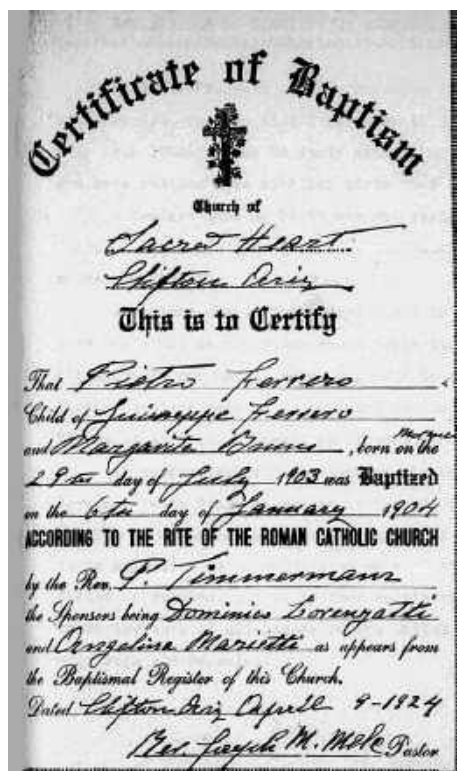 Certificate of Baptism
Church of
Sacred Heart
Clifton Ariz
This is to Certify
That Pietro Ferrero
Child of Guiseppe Ferrero
and Margarita Bruno, born on the
29th day of July 1903 was Baptized
on the 6th day of January 1904
ACCORDING TO THE RITE OF THE ROMAN CATHOLIC CHURCH
by the Rev. P. Timmermans
the Sponsors being Dominico Lorenzatti
and Angelina Marietti as appears from
the Baptismal Register of this Church.
Dated Clifton Ariz Aprell 9-1924
Rev. Joseph M. Pastor